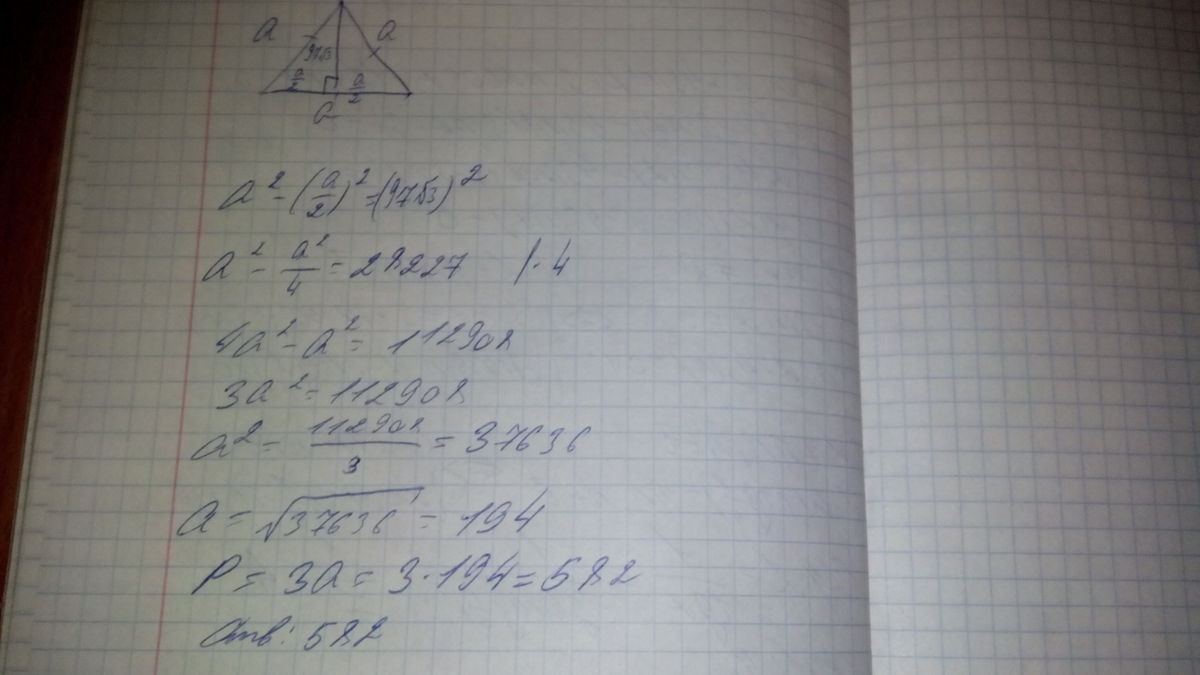 a a
97√3
a/2 a/2
a
a² - (a/2)² = (97√3)²
a² - a²/4 = 28227 |·4
4a² - a² = 112908
3a² = 112908
a² = 112908/3 = 37636
a = √37636 = 194
P = 3a = 3·194 = 582
Отв: 582